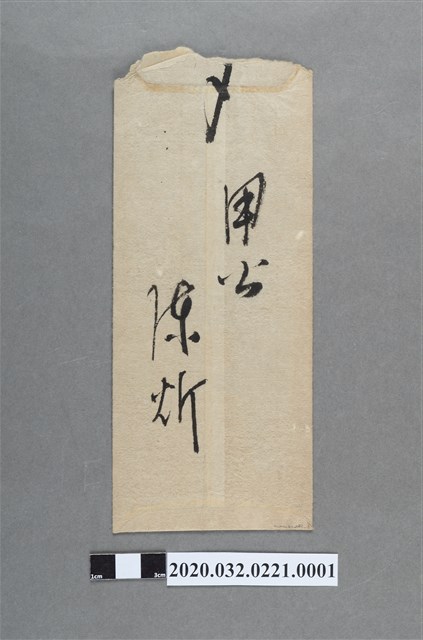 〆
陳炘
1cm 3cm
2020.032.0221.0001